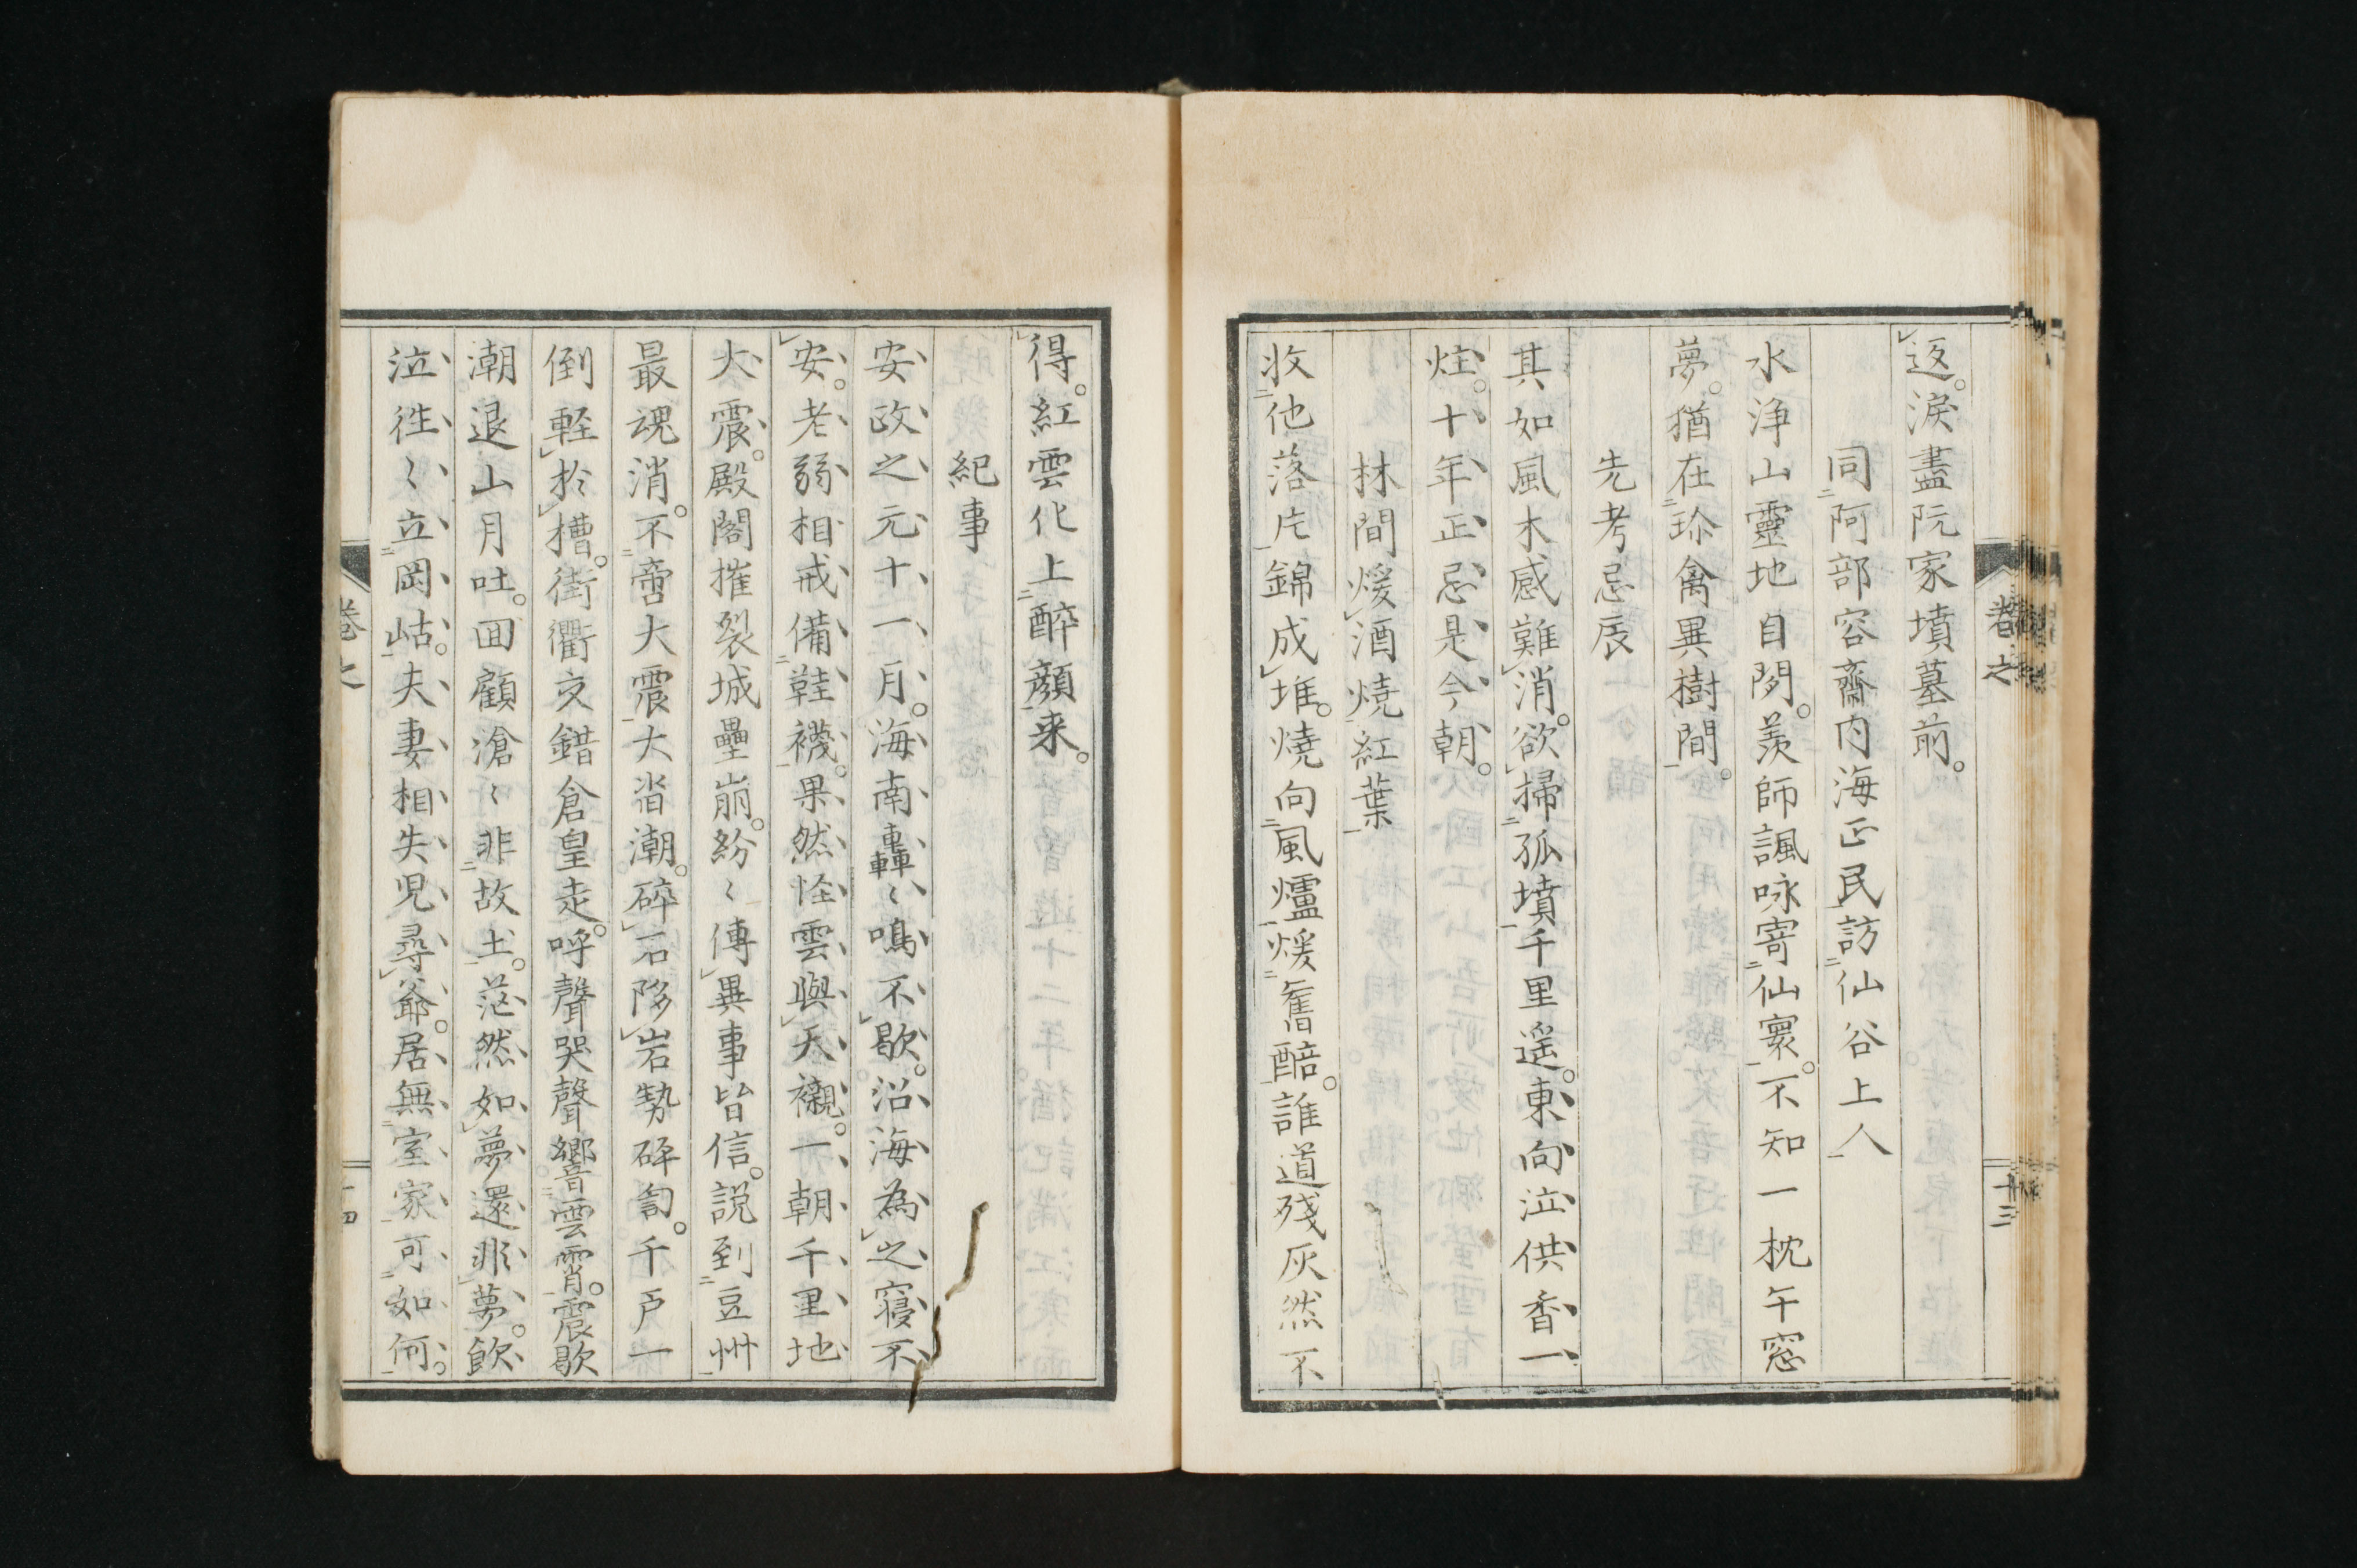 返。淚盡阮家墳墓前。
同阿部容齋內海正民訪仙谷上人
水浄山靈地自閑。羨師諷咏寄仙寰。不知一枕午窓
夢。猶在珎禽異樹間。
先考忌辰
其如風木感難消。欲掃孤墳千里遥。東向泣供香一
炷。十年正忌是今朝。
林間煖酒燒紅葉
收他落片錦成堆。燒向風爐煖舊醅。誰道殘灰然不
十三
得。紅雲化上醉顏来。
紀事
安政之元十一月。海南轟〻鳴不歇。沿海為之寢不
安。老弱相戒備鞋襪。果然怪雲與天襯。一朝千里地
大震。殿閣摧裂城壘崩。紛〻傳異事皆信。說到豆州
最魂消。不啻大震大沓潮。碎石陊岩勢砰訇。千戶一
倒輕於槽。街衢交錯倉皇走。呼聲哭聲響雲霄。震歇
潮退山月吐。囬顧滄〻非故土。茫然如夢還非夢。飲
泣徃〻立岡岵。夫妻相失児尋爺。居無室家可如何。
十四